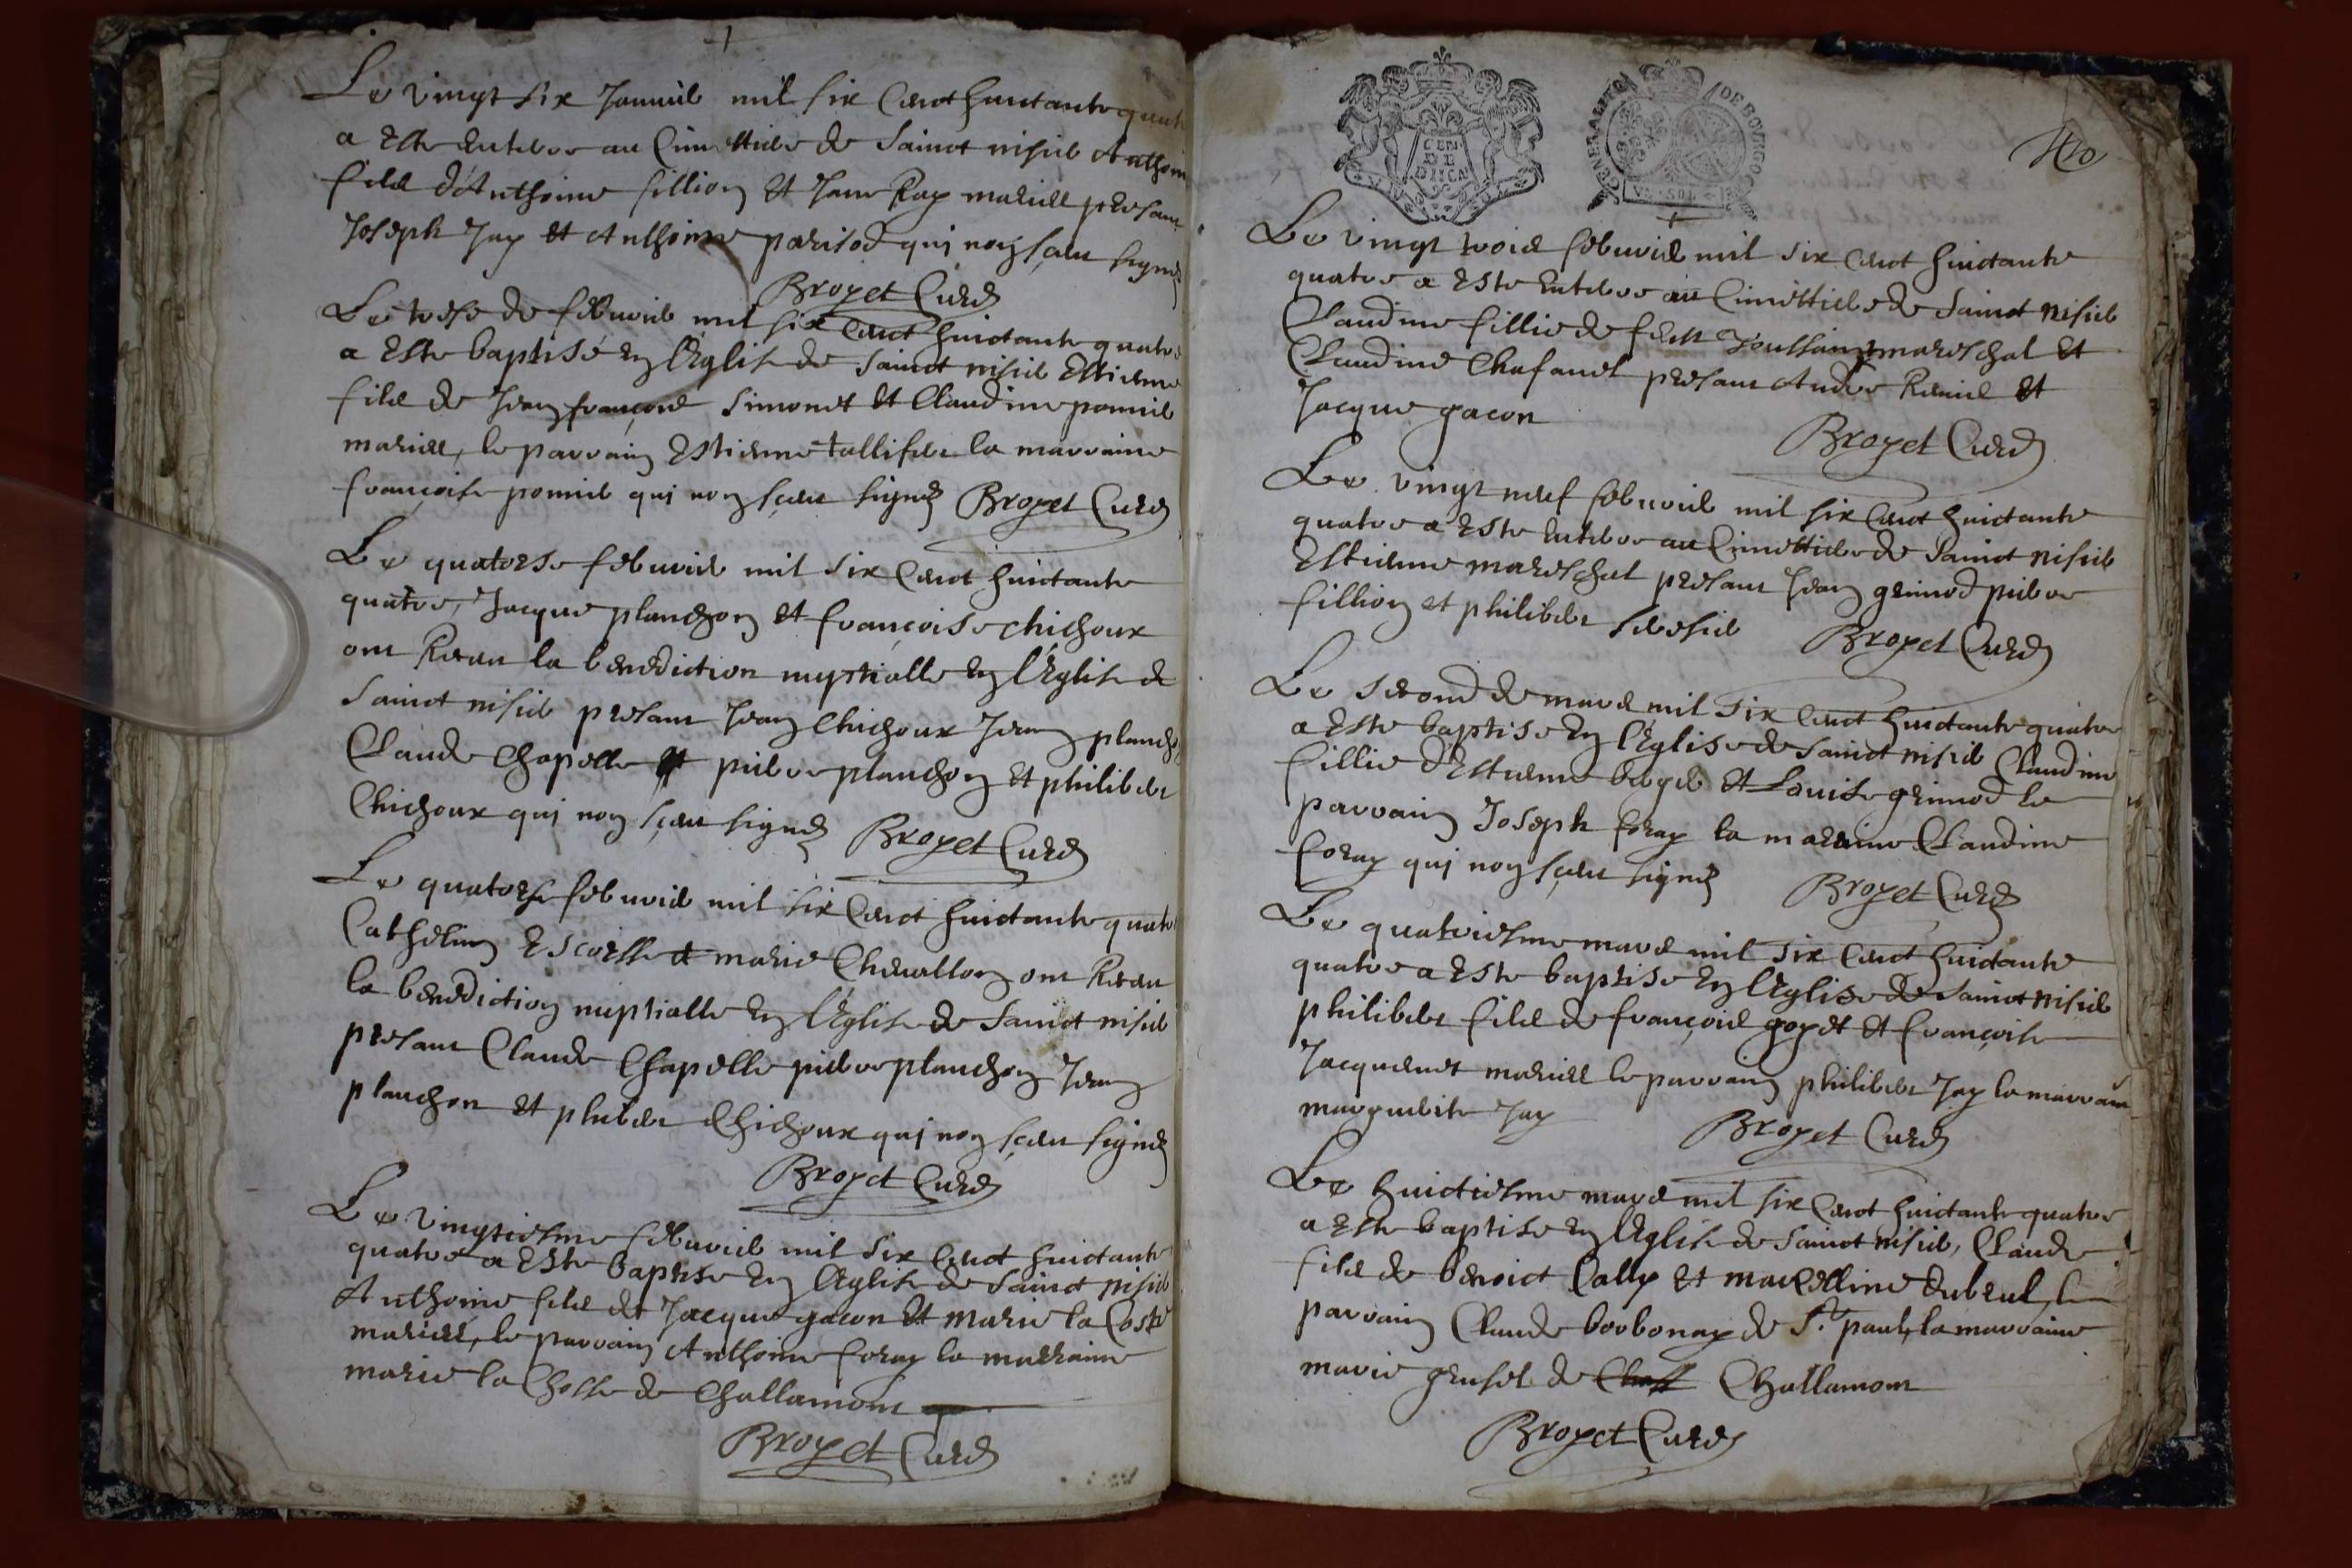 Le vingt six Januier mil six cent huictante quat
a este enterre au Cimettiere de Sainct nisier Anthoin
fils d'Anthoine fillion et Jane Ray maries presant
Joseph Jay et Anthoine parisod qui non sceu signer
Broyet Curé
Le trese de febvrier mil six cent huictante quatre
a este baptisé en l'Eglise de Sainct nisier Estienne
fils de Jean françois Simonet et Claudine pomier
maries, le parrain Estienne tallifer la marraine
françoise pomier qui non sceu signer Broyet Curé
Le quatorse febvrier mil six cent huictante
quatre, Jacque planchon et françoise chichoux
ont Receu la benediction nuptialle en l'Eglise de
Sainct nisier presant Jean Chichoux Jean planch
Claude Chapelle et pierre planchon et philiber
Chichoux qui non sceu signer Broyet Curé
Le quatorse febvrier mil six cent huictante quatr
Cathelin Escoisse et marie Chevallon ont Receu
la benediction nuptialle en l'Eglise de Sainct nisier
presant Claude Chapelle pierre planchon Jean
planchon et phiber Chichoux qui non sceu signer
Broyet Curé
Le vingtiesme febvrier mil six cent huictante
quatre a este baptise en l'Eglise de Sainct nisier
Anthoine fils de Jacque gacon et marie la Coste
maries, le parrain Anthoine foray la marraine
marie la Chosse de Challamont
Broyet Curé
GENERALITE DE BOVRGOG
Le vingt trois febvrier mil six cent huictante
quatre a este enterre au Cimettiere de Sainct nisier
Claudine fillie de feu Toussainct mareschal et
Claudine Chafanel presant Andre Renie et
Jacque gacon
Broyet Curé
Le vingt neuf febvrier mil six cent huictante
quatre a este enterre au Cimettiere de Sainct nisier
Estienne mareschal presant Jean grimod pierre
fillion et philiber
Broyet Curé
Le second de mars mil six cent huictante quatre
a este baptise en l'Eglise de Sainct nisier Claudine
fillie d'Estienne et Louise grimod le
parrain Joseph foray la maraine Claudine
foray qui non sceu signer
Broyet Curé
Le quatriesme mars mil six cent huictante
quatre a este baptise en l'Eglise de Sainct nisier
philiber fils de françois goyet et françoise
Jacquenet maries le parrain philiber Jay la marrain
marguerite Jay
Broyet Curé
Le huictiesme mars mil six cent huictante quatre
a este baptise en l'Eglise de Sainct nisier, Claude
fils de benoict Cally et marcelline dubreul, le
parrain Claude borbonay de St. paul, la marraine
marie grusel de Challamont
Broyet Curé